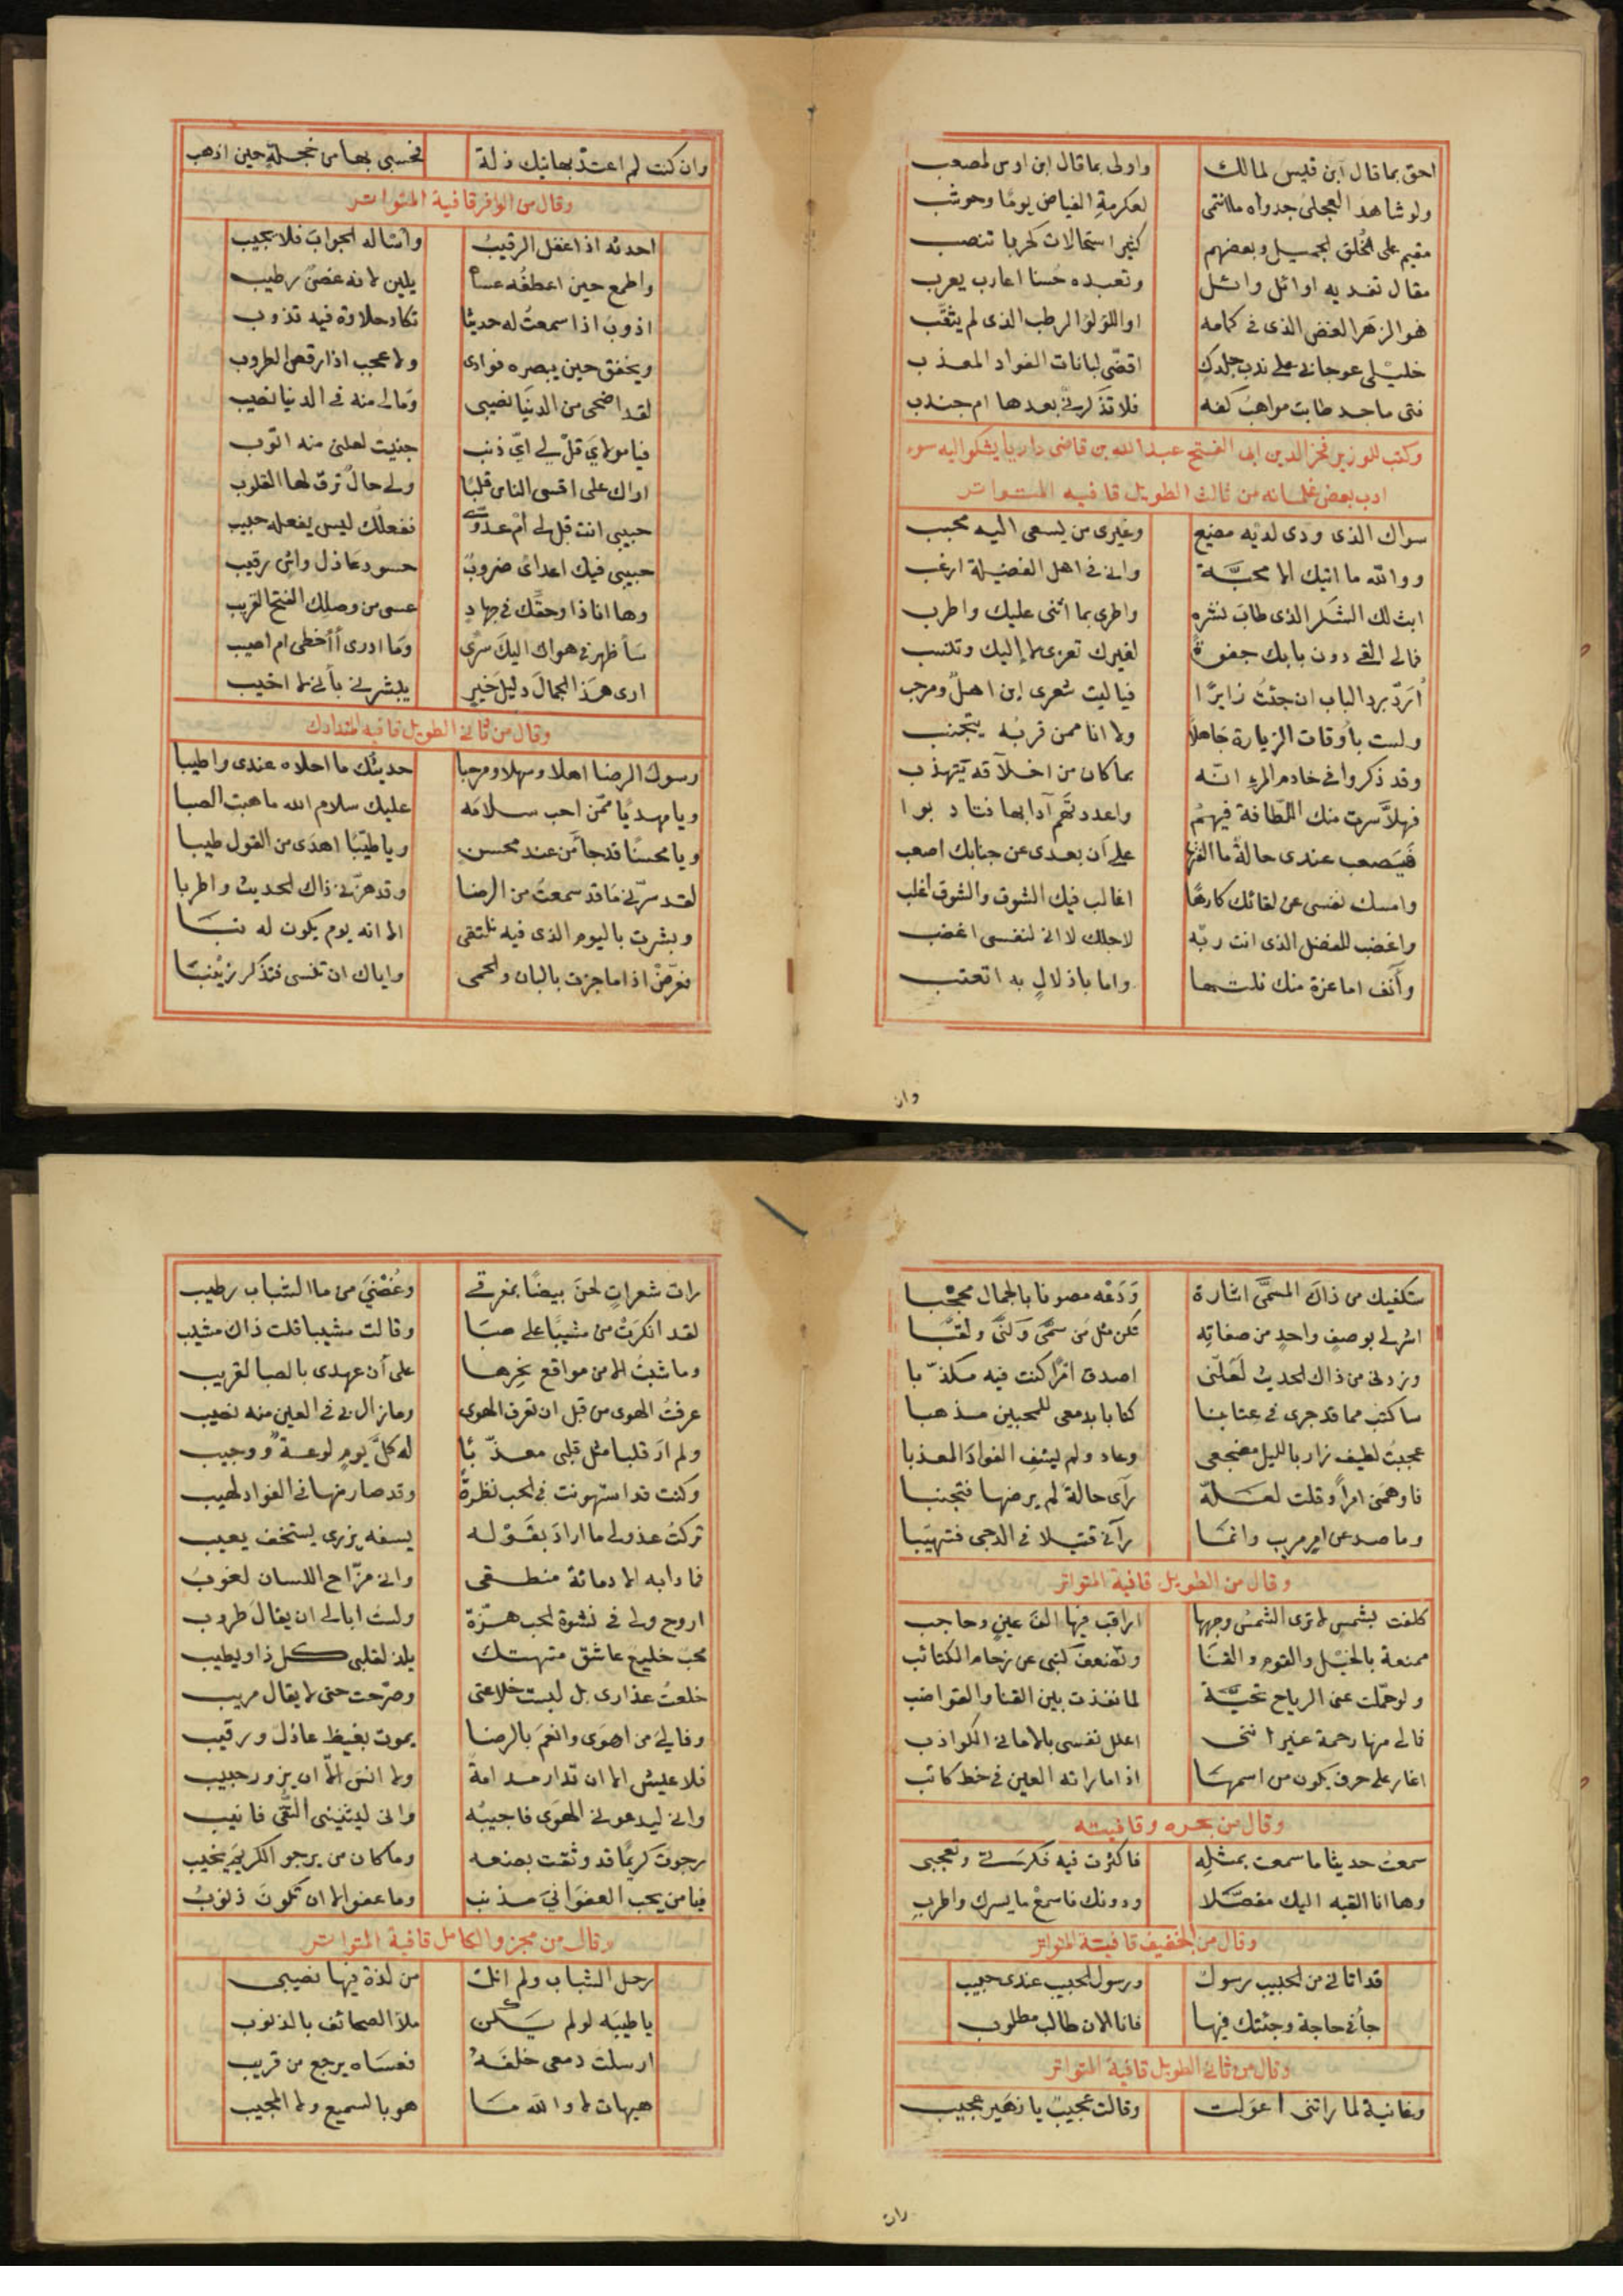 احق بما قال ابن قيس لمالك واولى بما قال ابن اوس لمصعب
ولو شاهد العجلى جدواه ما انتمى لعكرمة الفياض يومًا وحوشب
مقيم على الخلق الجميل وبعضهم كثير استحالات كحربا تنصب
مقال تفديه اوائل وائل وتعبده حُسنا اعارب يعرب
هو الزهر الغض الذى فى كمامه او اللؤلؤ الرطب الذى لم يثقّب
خليلى عوجا بى على ندب جلدك اقضّى لبانات الفواد المعذب
فتى ماجد طابت مواهبُ كفه فلا تذكرنى بعدها ام جندب
وكتب للوزير فخر الدين ابى الفتح عبد الله بن قاضى داريا يشكو اليه سوء
ادب بعض غلمانه من ثالث الطويل قافيه المتواتر
سواك الذى ودى لديه مضيع وغيرى من يسعى اليه محبب
ووالله ما اتيك الا محبَّة وانى فى اهل الفضيلة ارغب
ابث لك الشكر الذى طاب نشره واطرى بما اثنى عليك واطرب
فمالى القى دون بابك جفوةً لغيرك تعزى لا اليك وتنسب
اُرَدُّ برد الباب ان جئتُ زايرًا فياليت شعرى اين اهلٌ ومرحب
ولست بأوقات الزيارة جَاهلاً ولا انا ممن قربُه يتجنب
وقد ذكروا فى خادم المرء انّه بما كان من اخلاقه يتهذب
فهلاَّ سرت منك اللّطافة فيهُم واعدتهُم آدابها فتادبوا
فَيَصعب عندى حالةٌ ما الفتها على أن بعدى عن جنابك اصعب
وامسك نفسى عن لقائك كارهًا اغالب فيك الشوق والشوق اغلب
واغضب للفضل الذى انت ربّه لاجلك لا انى لنفسى اغضب
وآنف اما عزة منك نلتها واما باذلالٍ به اتعتب
وان
وان كنت لم اعتدّ بهاتيك ذلة فحسبى بها من خجلةٍ حين اذهب
وقال من الوافر قافية المتواتر
احدثه اذا غفل الرقيبُ واسئاله الجوابَ فلا يجيب
واطمع حين اعطفُه عساه يلين لانه غصنٌ رطيب
اذوب اذا سمعتُ له حديثا تكاد حلاوة فيه تذوب
ويخفق حين يبصره فوادى ولا عجب اذا رقص الطروب
لقد اضحى من الدنيا نصيبى ومالى منه فى الدنيا نصيب
فيا مولاىَ قلْ لى اىّ ذنب جنيتُ لعلنى منه اتوب
اراك على اقسى الناس قلبًا ولى حالٌ ترقّ لها القلوب
حبيبى انت قل لى أمْ عدوّى ففعلُك ليس يفعله حبيب
حبيبى فيك اعداىْ ضروبٌ حسود عاذل واش رقيب
وها انا ذا وحقك فى جهادٍ عسى من وصلك الفتح القريب
سأظهر فى هواك اليكَ سرّى وَما ادرى أأخطى ام اصيب
ارى هَذا الجمالَ دليل خيرٍ يبشرنى بأنى لا اخيب
وقال من ثانى الطويل قافيه المتدارك
رسولَ الرضا اهلا وسهلا ومرحبا حديثُك ما احلاه عندى واطيبا
ويا مهديًا ممّن احب سلامَه عليك سلام الله ما هبت الصبا
ويا محسنًا قد جا من عند محسنٍ ويا طيّبًا اهدَى من القول طيبا
لقد سرّنى مَا قد سمعتُ من الرضا وقد هزّنى ذاك الحديث واطربا
وبشرت باليوم الذى فيه نلتقى الا انه يوم يكون له نبَا
فعرّضْ اذا ما جزت بالبان والحمى واياك ان تنسى فتذكر زينبَا
ستكفيك من ذاك المسمَّى اشارة وَدَعْه مصونا بالجمال محجّبا
اشر لى بوصف واحدٍ من صفاتِه تكن مثل مَن سمّى وَكنّى ولقبَّا
وزدنى من ذاك الحديث لَعَلّنى اصدق امرًا كنت فيه مكذّبا
ساكتب مما قد جرى فى عتابنا كتابا بدمعى للمحبين مذهبا
عجبتُ لطيف زار بالليل مضجعى وعاد ولم يشفِ الفوادَ المعذبا
فاوهمنى امراً وقلت لعَلّه رآى حالةً لم يرضها فتجنبا
وما صد عن امرٍ مريب وانمَا رآنى قتيلا فى الدجى فتهيّبا
وقال من الطويل قافية المتواتر
كلفت بشمسٍ لا ترى الشمسُ وجهها اراقب فيها الفَ عينٍ وحاجب
ممنعة بالخيل والقوم والقنَا وتضعف كتبى عن زحام الكتائب
ولو حمّلت عنى الرياح تحيَّة لما نفذت بين القنا والقواضب
فمالى منها رحمة غير اننى اعلل نفسى بالامانى الكواذب
اغار على حرف يكون من اسمهَا اذا ما راته العين فى خط كاتب
وقال من بحره وقافيته
سمعتُ حديثا ما سمعت بمثلِه فاكثرت فيه فكرتى وتعجبى
وها انا القيه اليك مفصّلا ودونك فاسمعْ ما يسرك واطربِ
وقال من الخفيف قافيته المتواتر
قد اتانى من الحبيب رسولٌ ورسول الحبيب عندى حبيب
جأنى حاجة وجئتك فيها فانا الان طالب مطلوب
وقال من ثانى الطويل قافية المتواتر
وغانية لما راتنى اعولت وقالت عجيبٌ يا زهير عجيب
رات
رات شعراتٍ لحنَ بيضًا بمفرقى وغُصْنىَ من ما الشباب رطيب
لقد انكرَتْ من مشيبًا على صبَا وقالت مشيبا قلت ذاك مشيب
وما شبتُ الا من مواقع نجرها على أن عهدى بالصبا لقريب
عرفتُ الهوى من قبل ان تعرف الهوى وما زال لى فى العين منه نصيب
ولم ارَ قلبا مثل قلبى معذّبًا له كلَّ يومٍ لوعةٌ ووجيب
وكنت قد استهونت فى الحب نظرةً وقد صار منها فى الفواد لهيب
تركتُ عذولى ما ارادَ بقَوْله يسفه يزرى يستخف يعيب
فما رابه الا دماثة منطقى وانى مزّاح اللسان لعوبُ
اروح ولى فى نشوة الحب هزّة ولست ابالى ان يقالَ طروب
محبّ خليع عاشق متهتك يلذ لقلبى كل ذا ويطيب
خلعتُ عذارى بل لبست خلاعتى وصرّحت حتى لا يقال مريب
وفا لىَ من اهوَى وانعم بالرضا يموت بغيظ عاذل ورقيب
فلا عيش الا ان تدار مدامةٌ ولا انسَ الّا ان يزور حبيب
وانى ليدعونى الهوَى فاجيبُه وانى ليثنينى التُّقى فانيب
رجوت كريمًا قد وثقت بصنعه وما كان من يرجو الكريمَ يخيب
فيا من يحب العفوَ انىَ مذنب وما عفو الا ان تكونَ ذنوبُ
وقال من مجزو الكامل قافية المتواتر
رحل الشباب ولم انلْ من لذة فيها نصيبى
يا طيبَه لو لم يكن ملأ الصحائف بالذنوب
ارسلت دمعى خلفَهُ فعسَاه يرجع من قريب
هيهات لا والله مَا هو بالسميع ولا المجيب